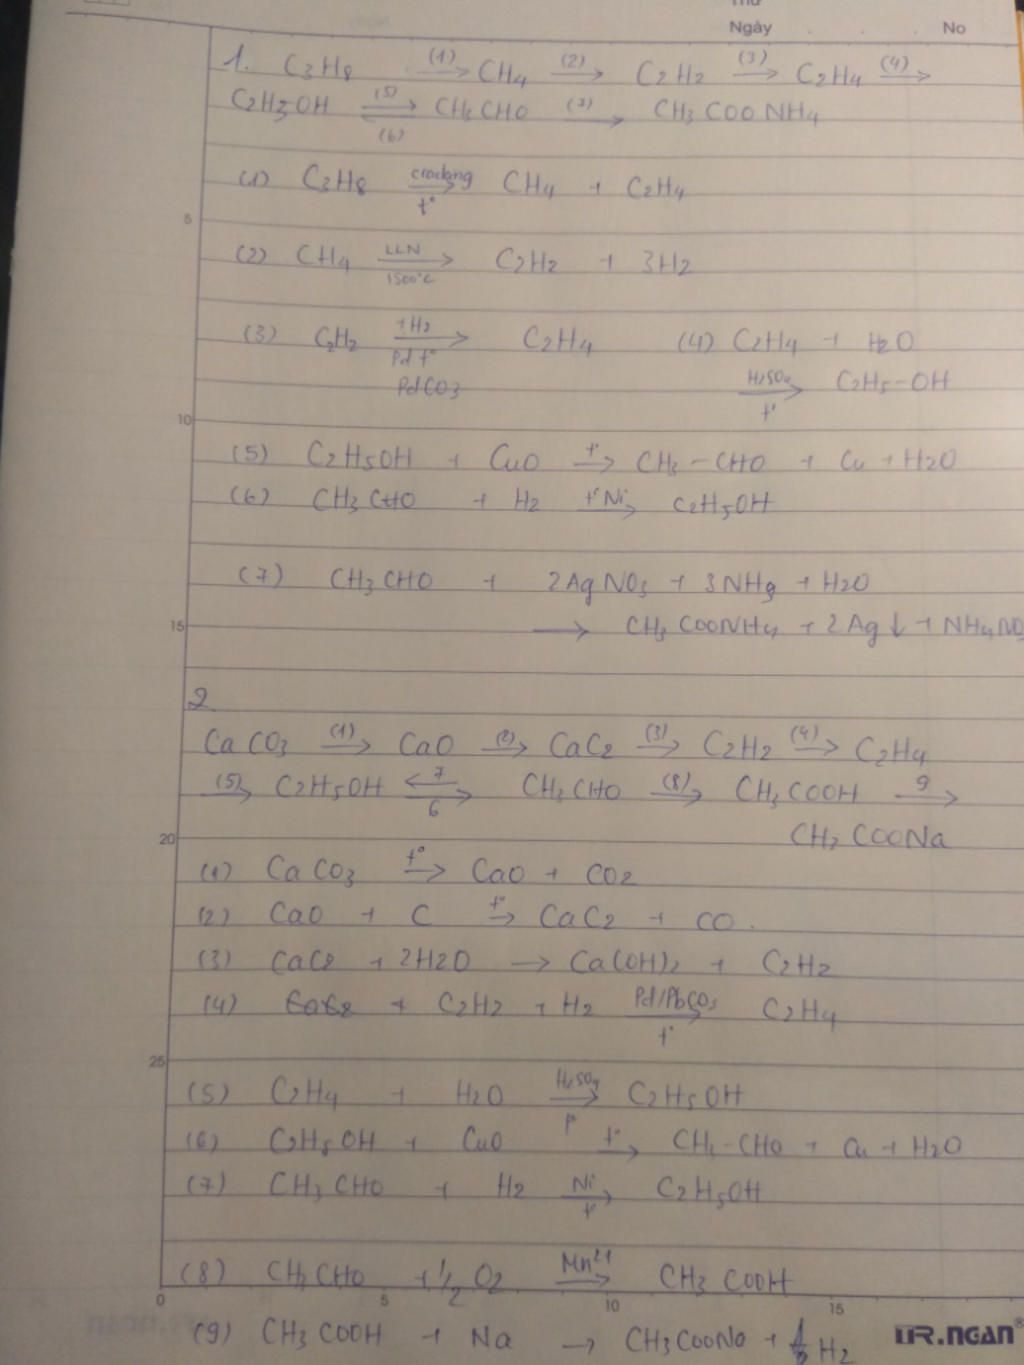 Thứ
Ngày . . No
1. C3H8 (1)→ CH4 (2)→ C2H2 (3)→ C2H4 (4)→
C2H5OH (5)⇄(6) CH3CHO (7)→ CH3COONH4
(1) C3H8 cracking→t° CH4 + C2H4
5
(2) CH4 LLN→1500°C C2H2 + 3H2
(3) C2H2 +H2→Pd t° C2H4 (4) C2H4 + H2O
PdCO3 H2SO4→t° C2H5-OH
10
(5) C2H5OH + CuO t°→ CH3-CHO + Cu + H2O
(6) CH3CHO + H2 t° Ni→ C2H5OH
(7) CH3CHO + 2AgNO3 + 3NH3 + H2O
15 → CH3COONH4 + 2Ag↓ + NH4NO3
2
CaCO3 (1)→ CaO (2)→ CaC2 (3)→ C2H2 (4)→ C2H4
(5)→ C2H5OH 7⇄6 CH3CHO (8)→ CH3COOH 9→
20 CH3COONa
(1) CaCO3 t°→ CaO + CO2
(2) CaO + C t°→ CaC2 + CO.
(3) CaC2 + 2H2O → Ca(OH)2 + C2H2
(4) CaC2 + C2H2 + H2 Pd/PbCO3→t° C2H4
25
(5) C2H4 + H2O H2SO4→ C2H5OH
(6) C2H5OH + CuO t°→ CH3-CHO + Cu + H2O
(7) CH3CHO + H2 Ni→t° C2H5OH
(8) CH3CHO + 1/2 O2 Mn2+→ CH3COOH
0 5 10 15
(9) CH3COOH + Na → CH3COONa + 1/2 H2 TR.NGAN®